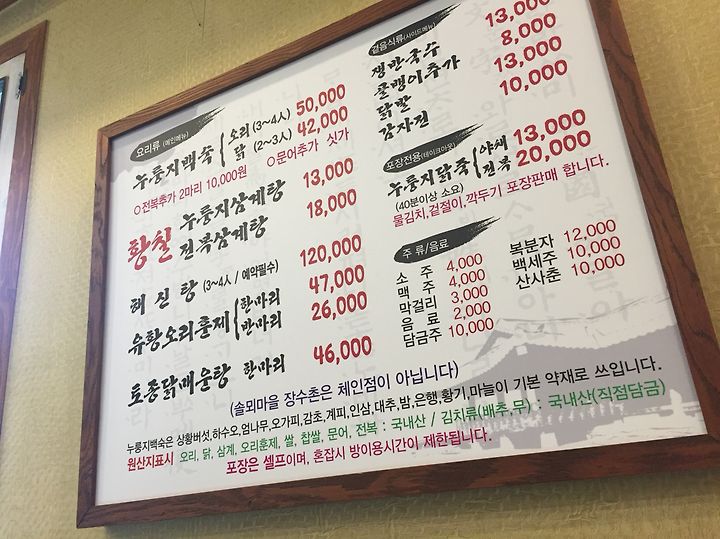 요리류 (메인메뉴)
누룽지백숙 { 오리 (3~4人) 50,000
닭 (2~3人) 42,000
○전복추가 2마리 10,000원 ○문어추가 싯가
황칠 누룽지삼계탕 13,000
전복삼계탕 18,000
해신탕 (3~4人 / 예약필수) 120,000
유황오리훈제 { 한마리 47,000
반마리 26,000
토종닭매운탕 한마리 46,000
곁음식류 (사이드메뉴)
쟁반국수 13,000
골뱅이추가 8,000
닭발 13,000
감자전 10,000
포장전용 (테이크아웃)
누룽지닭죽 { 야채 13,000
전복 20,000
(40분이상 소요)
물김치,겉절이,깍두기 포장판매 합니다.
주류/음료
소주 4,000
맥주 4,000
막걸리 3,000
음료 2,000
담금주 10,000
복분자 12,000
백세주 10,000
산사춘 10,000
(솔뫼마을 장수촌은 체인점이 아닙니다)
누룽지백숙은 상황버섯,하수오,엄나무,오가피,감초,계피,인삼,대추,밤,은행,황기,마늘이 기본 약재로 쓰입니다.
원산지표시 오리, 닭, 삼계, 오리훈제, 쌀, 찹쌀, 문어, 전복 : 국내산 / 김치류(배추,무) : 국내산(직접담금)
포장은 셀프이며, 혼잡시 방이용시간이 제한됩니다.